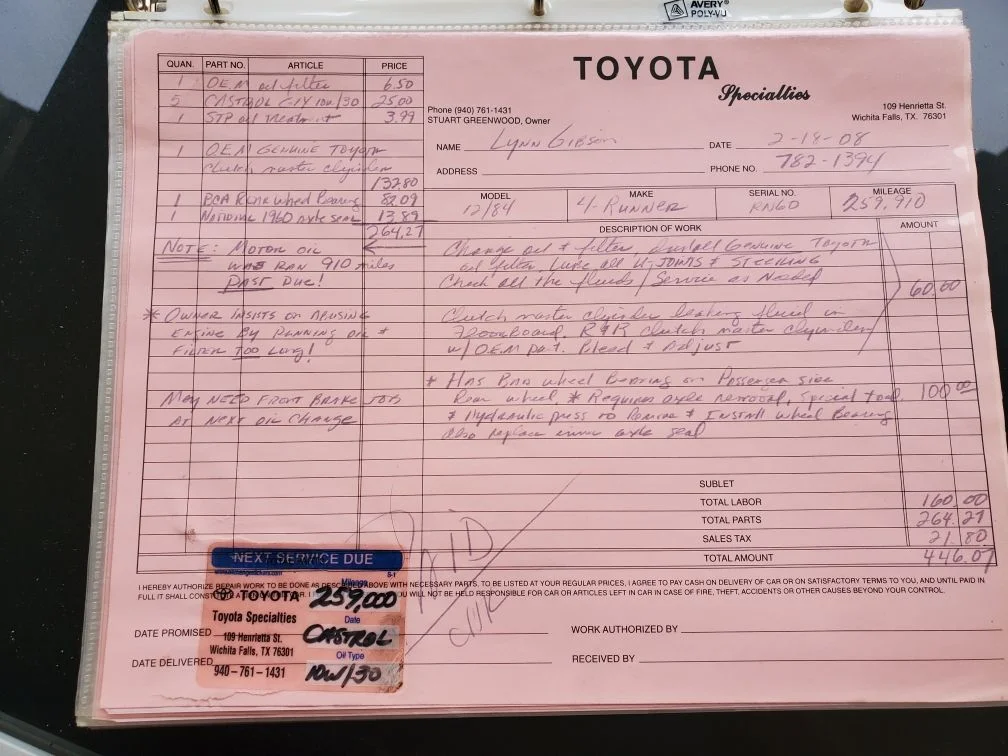 AVERY®
POLY-VU
TOYOTA
Specialties
Phone (940) 761-1431
STUART GREENWOOD, Owner
109 Henrietta St.
Wichita Falls, TX. 76301
NAME Lynn Gibson DATE 2-18-08
ADDRESS PHONE NO. 782-1394
MODEL MAKE SERIAL NO. MILEAGE
12/84 4-RUNNER RN60 259,910
QUAN. PART NO. ARTICLE PRICE
1 O.E.M oil filter 6.50
5 CASTROL GTX 10W/30 25.00
1 STP oil treatment 3.99
1 O.E.M GENUINE TOYOTA
Clutch master clyinder
132.80
1 BCA REAR wheel Bearing 82.09
1 NATIONAL 1960 axle seal 13.89
264.27
NOTE: MOTOR OIL
WAS RAN 910 miles
PAST DUE!
* OWNER INSISTS ON ABUSING
ENGINE BY RUNNING OIL &
FILTER TOO LONG!
MAY NEED FRONT BRAKE JOB
AT NEXT OIL CHANGE
DESCRIPTION OF WORK AMOUNT
Change oil & filter, Install Genuine Toyota
oil filter, Lube all U-JOINTS & STEERING
Check all the fluids/Service as Needed
60.00
Clutch master clyinder leaking fluid in
Floorboard. R&R Clutch master clyinder
w/ O.E.M part. Bleed & Adjust
* HAS BAD wheel BEARING on Passenger side
Rear wheel, * Requires axle removal, Special tool 100.00
& Hydraulic press to Remove & INSTALL wheel Bearing
also replace inner axle seal
SUBLET
TOTAL LABOR 160.00
TOTAL PARTS 264.27
SALES TAX 21.80
TOTAL AMOUNT 446.07
PAID
I HEREBY AUTHORIZE REPAIR WORK TO BE DONE AS DESCRIBED ABOVE WITH NECESSARY PARTS, TO BE LISTED AT YOUR REGULAR PRICES, I AGREE TO PAY CASH ON DELIVERY OF CAR OR ON SATISFACTORY TERMS TO YOU, AND UNTIL PAID IN
FULL IT SHALL CONST YOU WILL NOT BE HELD RESPONSIBLE FOR CAR OR ARTICLES LEFT IN CAR IN CASE OF FIRE, THEFT, ACCIDENTS OR OTHER CAUSES BEYOND YOUR CONTROL.
DATE PROMISED WORK AUTHORIZED BY
DATE DELIVERED RECEIVED BY
NEXT SERVICE DUE
S-1
Mileage
TOYOTA 259,000
Toyota Specialties Date
109 Henrietta St. CASTROL
Wichita Falls, TX 76301 Oil Type
940-761-1431 10W/30